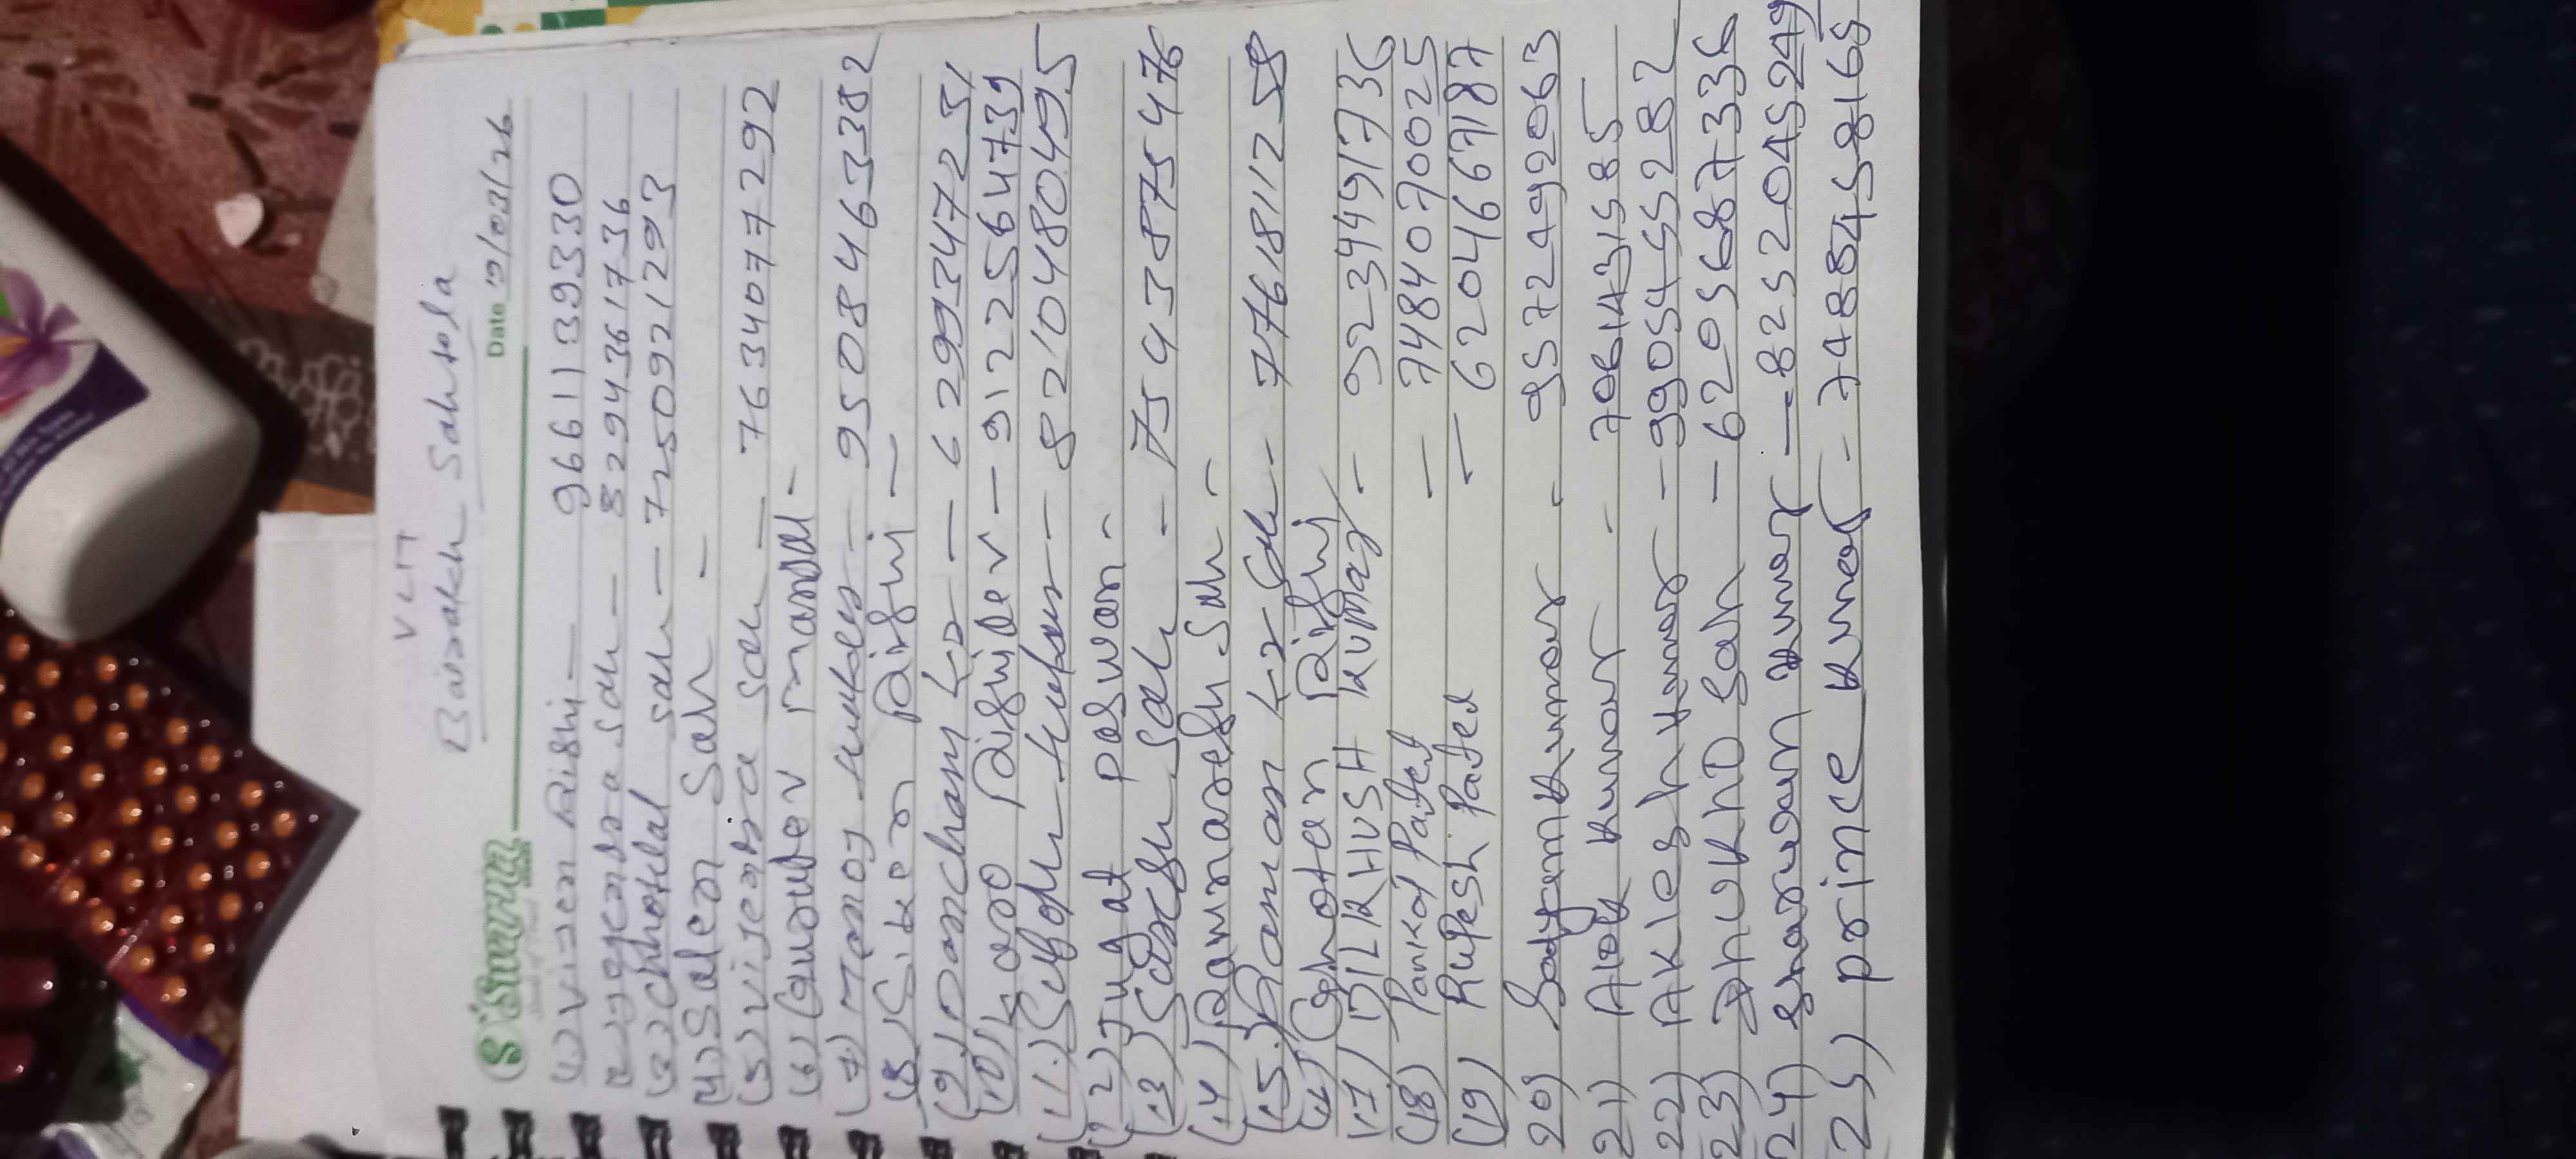 VLIT
Bairakh Sah tola
S Sworup
Date 19/03/26
(1) Viren Rishi — 9661139330
(2) yogendra Sah — 8294361736
(3) Chhotelal Sah — 7250921293
(4) Salen Sah —
(5) Vijendra Sah — 7634077292
(6) mandal -
(7) Manoj — 9508463382
(8) Rishi —
(9) Pancham Kr — 6299347251
(10) Karo Rishidev — 9122564739
(11.) — 8210480495
(12) Jugat paswan -
(13) Sah - 7549387547
(14) Ramnaresh Sah -
(15.) Raman Kr Sah - 7761811258
(16) Ghotan Rishi
(17) DILKHUSH KUMAR - 9234491736
(18) Pankaj Patel — 7484070025
(19) Rupesh Patel — 6204667187
20) Satyam Kumar - 9572492063
21) Alok Kumar - 7061431585
22) Aklesh Kumar — 9905455282
23) DhuKhD Sah — 6205687336
24) Sharwan Kumar — 8252045249
25) prince Kumar - 7488458165